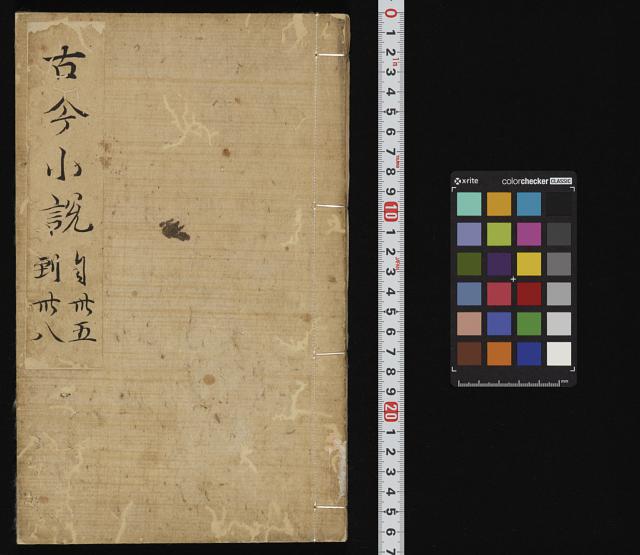 古今小説
自卅五
到卅八
0
1
2
1m
3
4
5
6
7
8
9
10
1
2
3
4
5
6
7
8
9
20
1
2
3
4
5
6
7
x-rite
colorchecker CLASSIC
mm